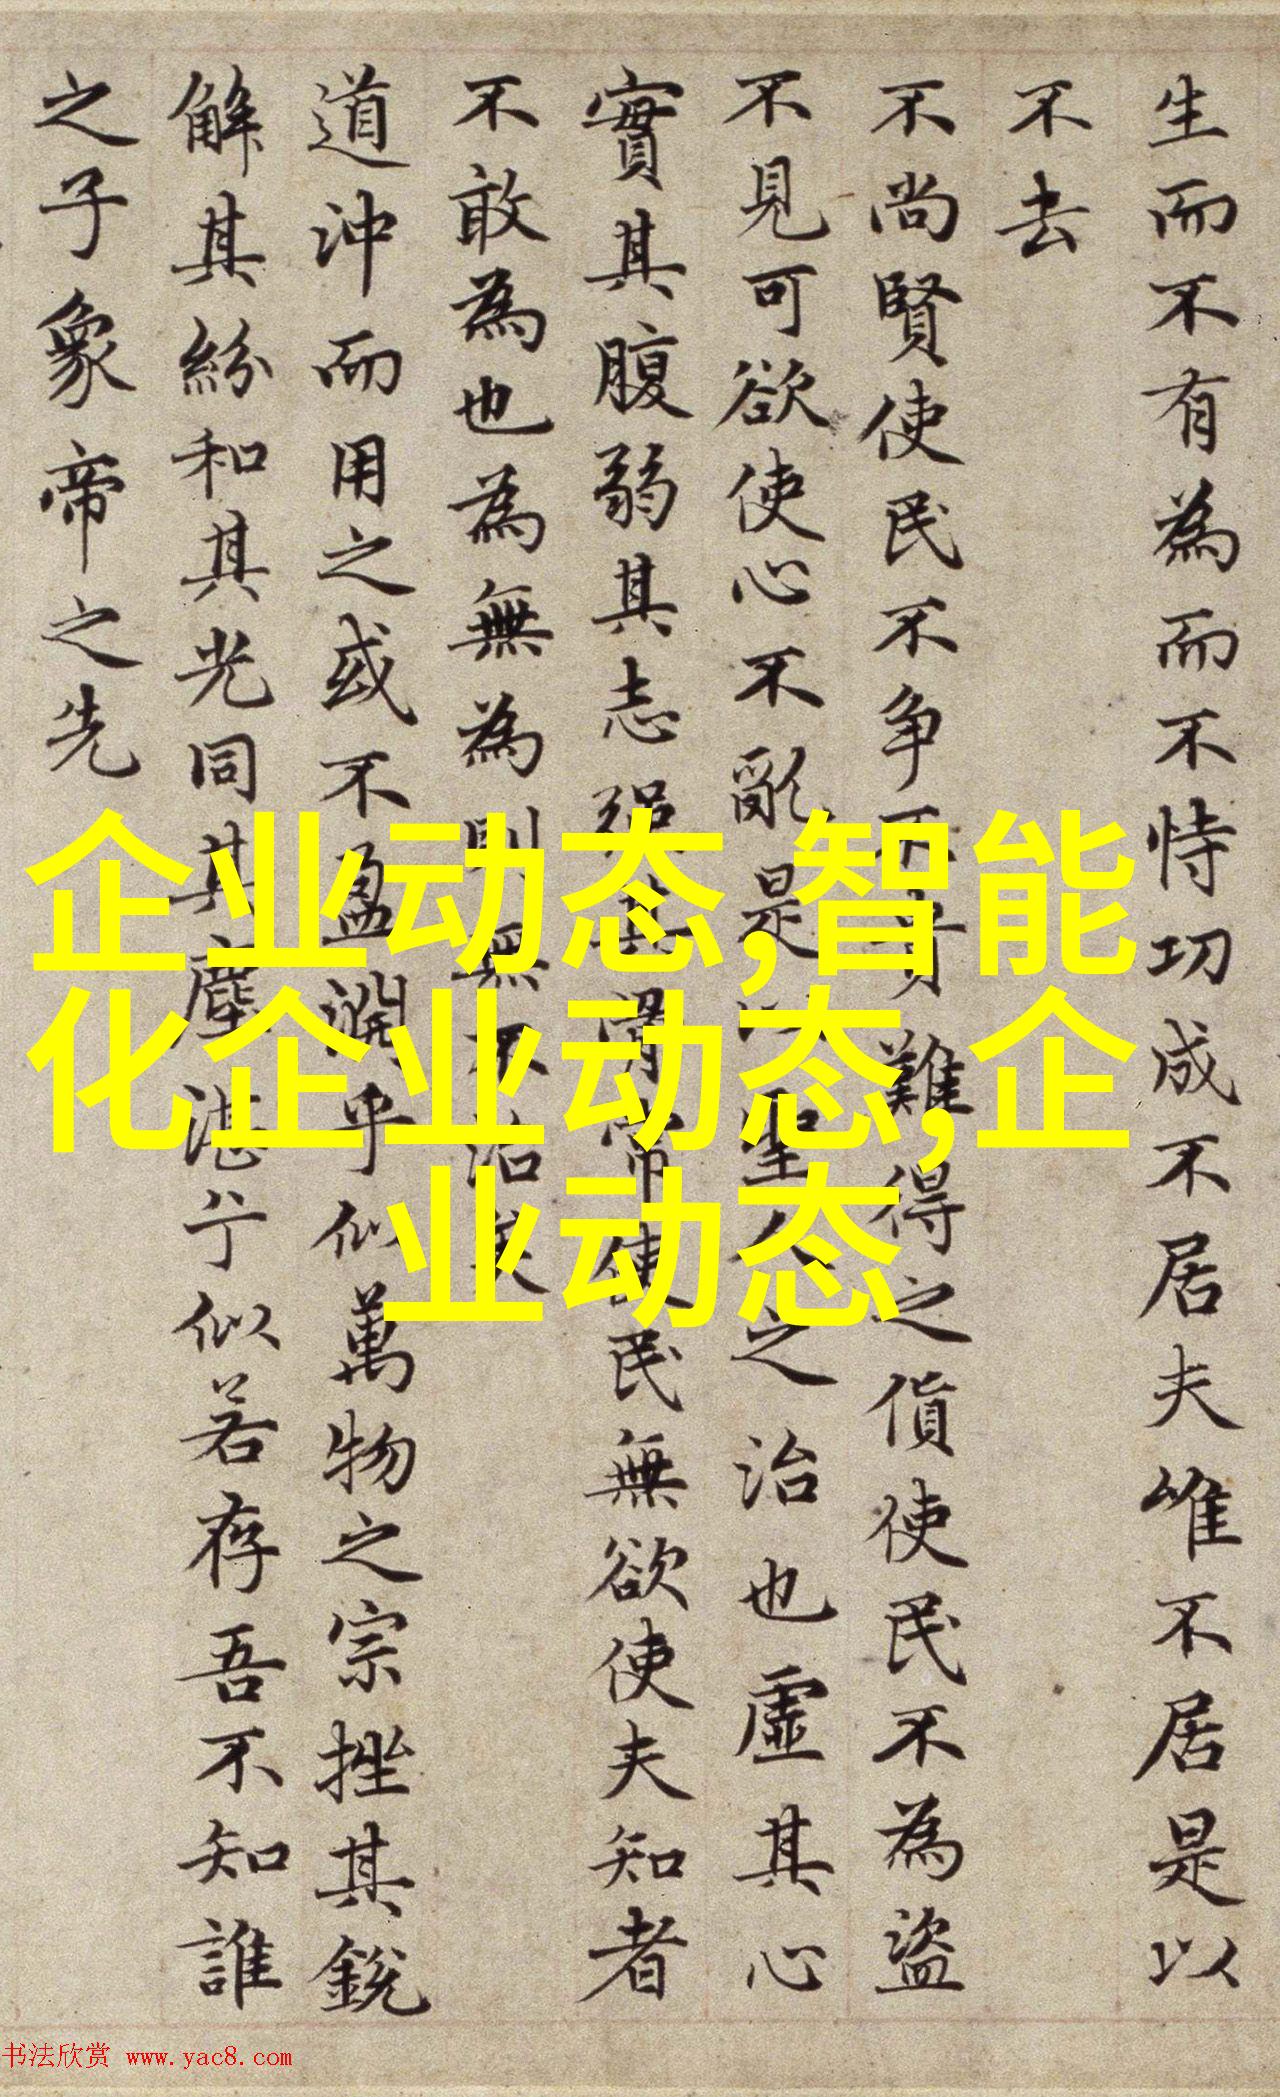 生而不有為而不恃功成不居夫唯不居是以
不去
不尚賢使民不争不貴難得之貨使民不為盗
不見可欲使心不亂是以聖人之治也虛其心
實其腹弱其志強其骨常使民無欲使夫知者
不敢為也為無為則無不治矣
道沖而用之或不盈淵乎似萬物之宗挫其銳
解其紛和其光同其塵湛兮似若存吾不知誰
之子象帝之先
企业动态,智能
化企业动态,企
业动态
书法欣赏 www.yac8.com